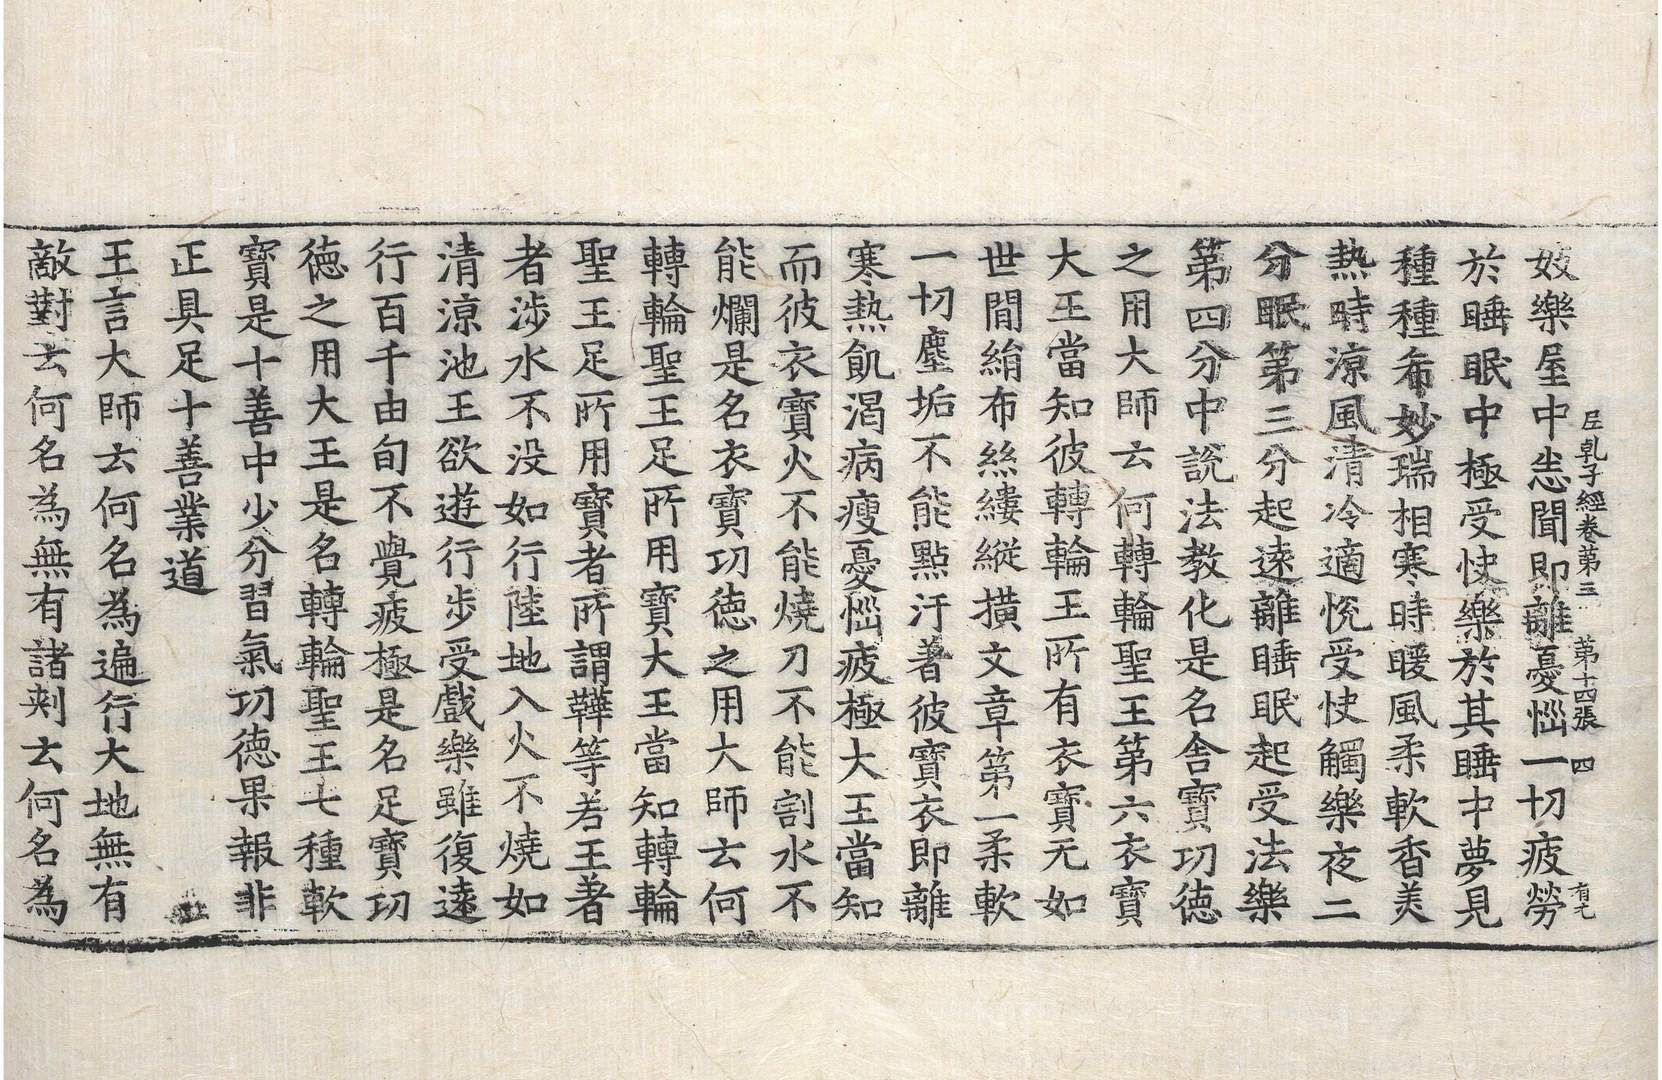 尼乾子經卷第三 第十四張 四 有
妓樂屋中恙聞即離憂惱一切疲勞
於睡眠中極受快樂於其睡中夢見
種種希妙瑞相寒時暖風柔軟香美
熱時涼風清冷適悅受快觸樂夜二
分眠第三分起遠離睡眠起受法樂
第四分中說法教化是名舍寶功德
之用大師云何轉輪聖王第六衣寶
大王當知彼轉輪王所有衣寶无如
世間絹布絲縷縱橫文章第一柔軟
一切塵垢不能點汙著彼寶衣即離
寒熱飢渴病瘦憂惱疲極大王當知
而彼衣寶火不能燒刀不能割水不
能爛是名衣寶功德之用大師云何
轉輪聖王足所用寶大王當知轉輪
聖王足所用寶者所謂鞾等若王著
者涉水不没如行陸地入火不燒如
清涼池王欲遊行步受戲樂雖復遠
行百千由旬不覺疲極是名足寶功
德之用大王是名轉輪聖王七種軟
寶是十善中少分習氣功德果報非
正具足十善業道
王言大師云何名為遍行大地無有
敵對云何名為無有諸刺云何名為